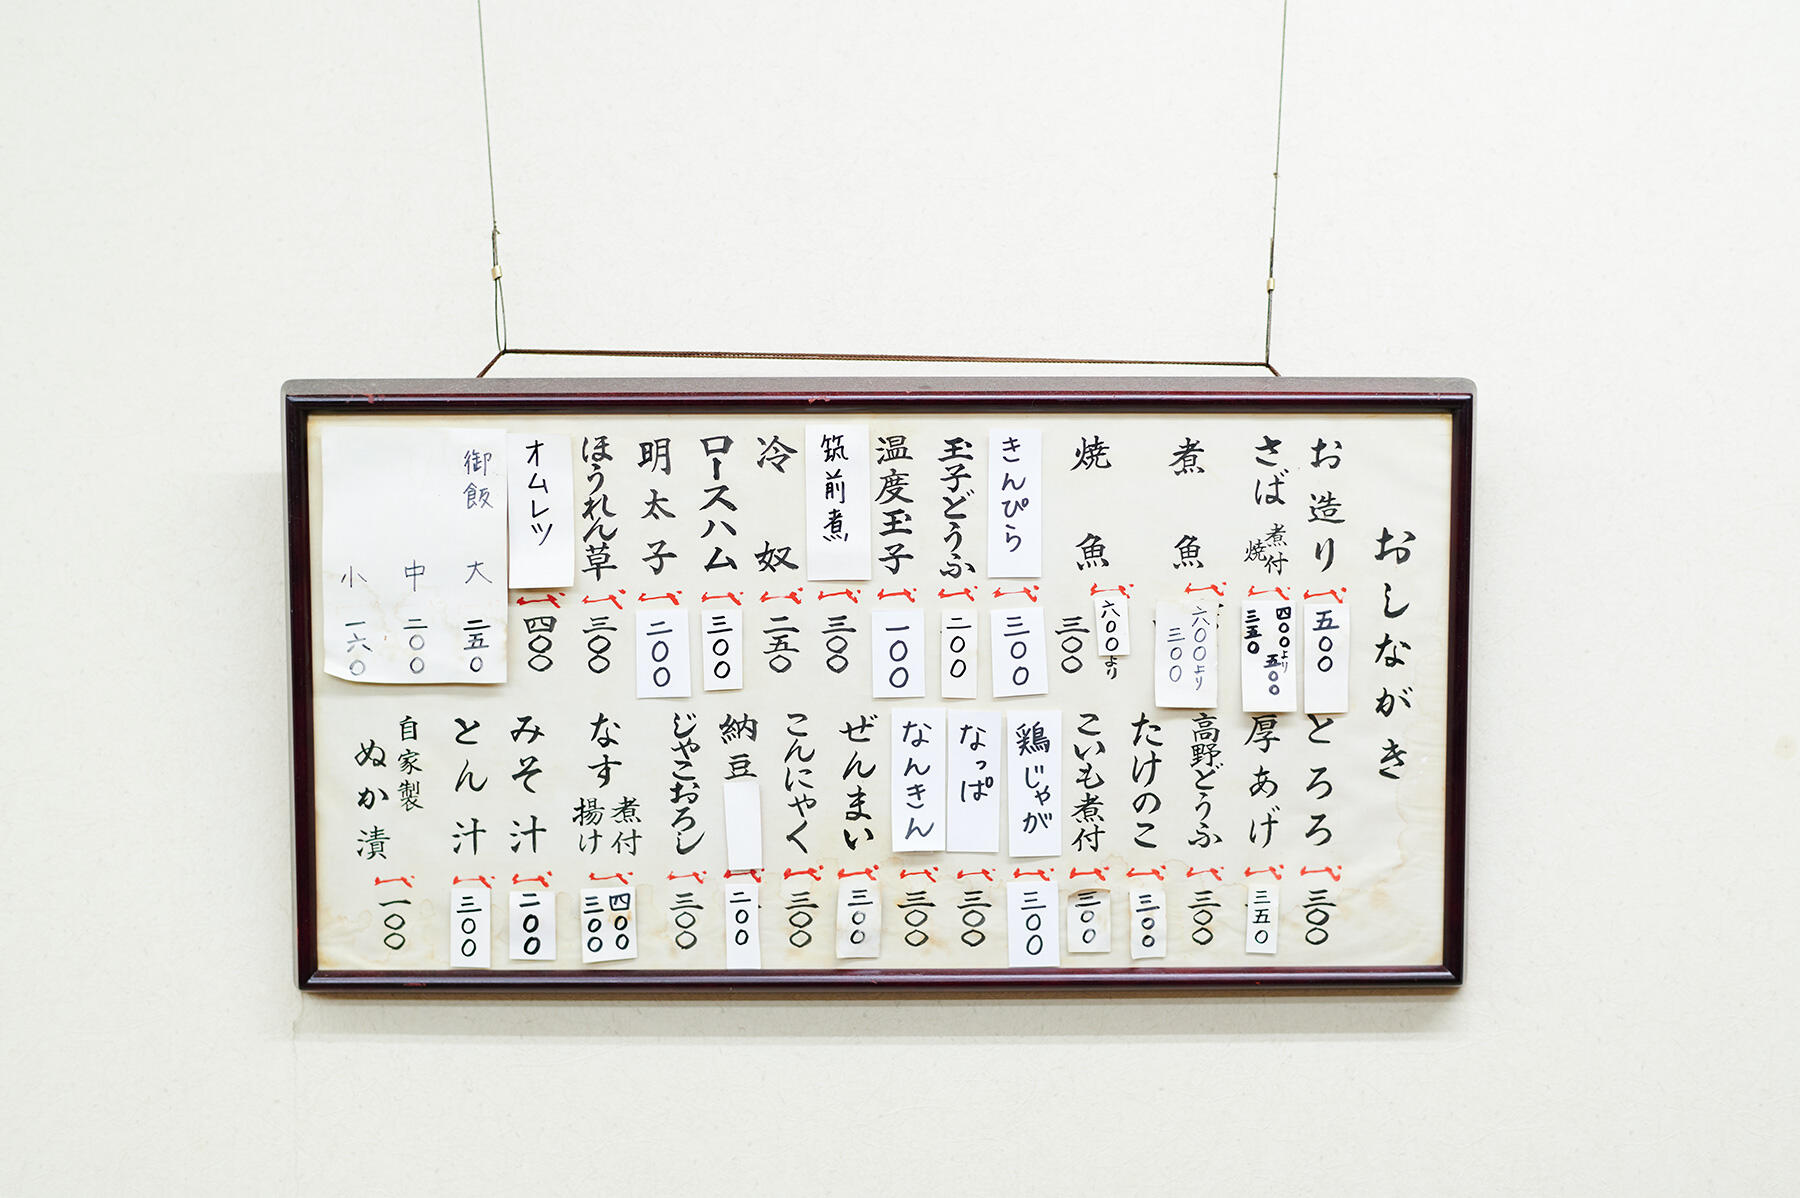 おしながき
お造り 代 五〇〇
さば 煮付 焼 代 四〇〇より 五〇〇 三五〇
煮魚 代 六〇〇より 三〇〇
焼魚 代 六〇〇より 三〇〇
きんぴら 代 三〇〇
玉子どうふ 代 二〇〇
温度玉子 代 一〇〇
筑前煮 代 三〇〇
冷奴 代 二五〇
ロースハム 代 三〇〇
明太子 代 二〇〇
ほうれん草 代 三〇〇
オムレツ 代 四〇〇
御飯 大 二五〇
中 二〇〇
小 一六〇
とろろ 代 三〇〇
厚あげ 代 三五〇
高野どうふ 代 三〇〇
たけのこ 代 三〇〇
こいも煮付 代 三〇〇
鶏じゃが 代 三〇〇
なっぱ 代 三〇〇
なんきん 代 三〇〇
ぜんまい 代 三〇〇
こんにゃく 代 三〇〇
納豆 代 二〇〇
じゃこおろし 代 三〇〇
なす 煮付 揚け 代 四〇〇 三〇〇
みそ汁 代 二〇〇
とん汁 代 三〇〇
自家製 ぬか漬 代 一〇〇